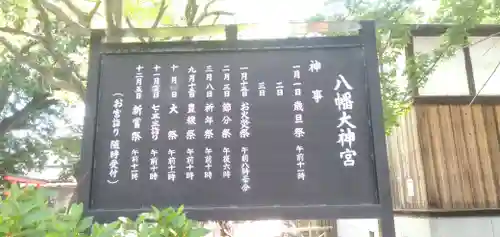 八幡大神宮
神事
一月一日 歳旦祭 午前十一時
二日
三日
一月十五日 お火焚祭 午前八時半分
二月三日 節分祭 午後六時
三月八日 祈年祭 午前十時
九月十日 豊穣祭 午前十時
十月 大祭 午前十一時
十一月 七五三詣り 午前十時
十二月五日 新嘗祭 午前十時
(お宮詣り 随時受付)